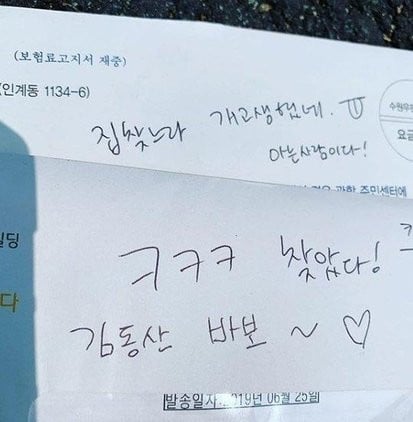 (보험료고지서 재중)
(인계동 1134-6)
집찾느라 개고생했네. ㅠ
아는사람이다!
주민센터에
딩
다
ㅋㅋㅋ 찾았다!
김동산 바보 ~ ♡
발송일자:2019년 06월 25일